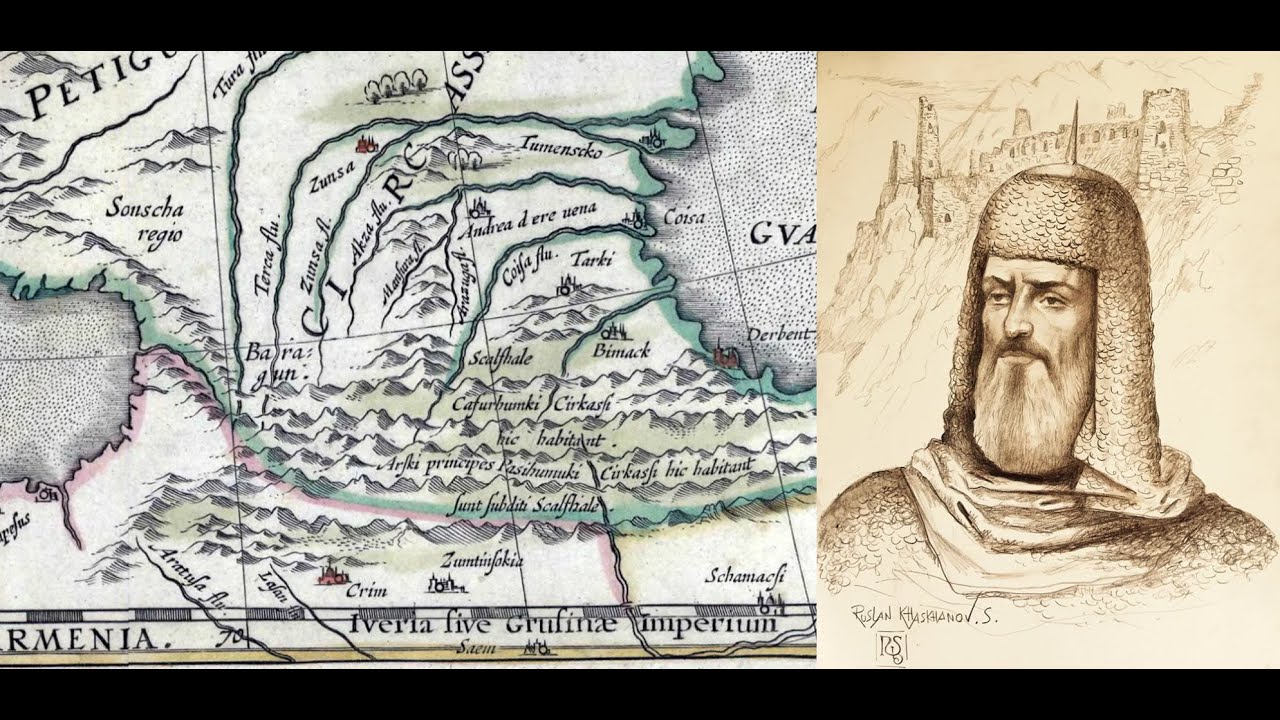 PETIGO
Tura flu
ASS
CIRC
Zunsa
Tumenscko
Sonscha
regio
Terca flu
Zunsa fl.
Akza flu.
Andrea d ere uena
Coisa
GVA
Coisa flu.
Tarki
Derbent
Bara:
gun.
Scalfhale
Bimack
Cafurhumki Cirkassi
hic habitant.
Arski principes Kasihumuki Cirkassi hic habitant
sunt subditi Scalfhale
Aratusa flu.
Lasan fl
Crim
Zumtinsokia
Schamacsi
RMENIA.
70
Iveria sive Grusinæ imperium
Saem
RUSLAN KHASKHANOV. S.